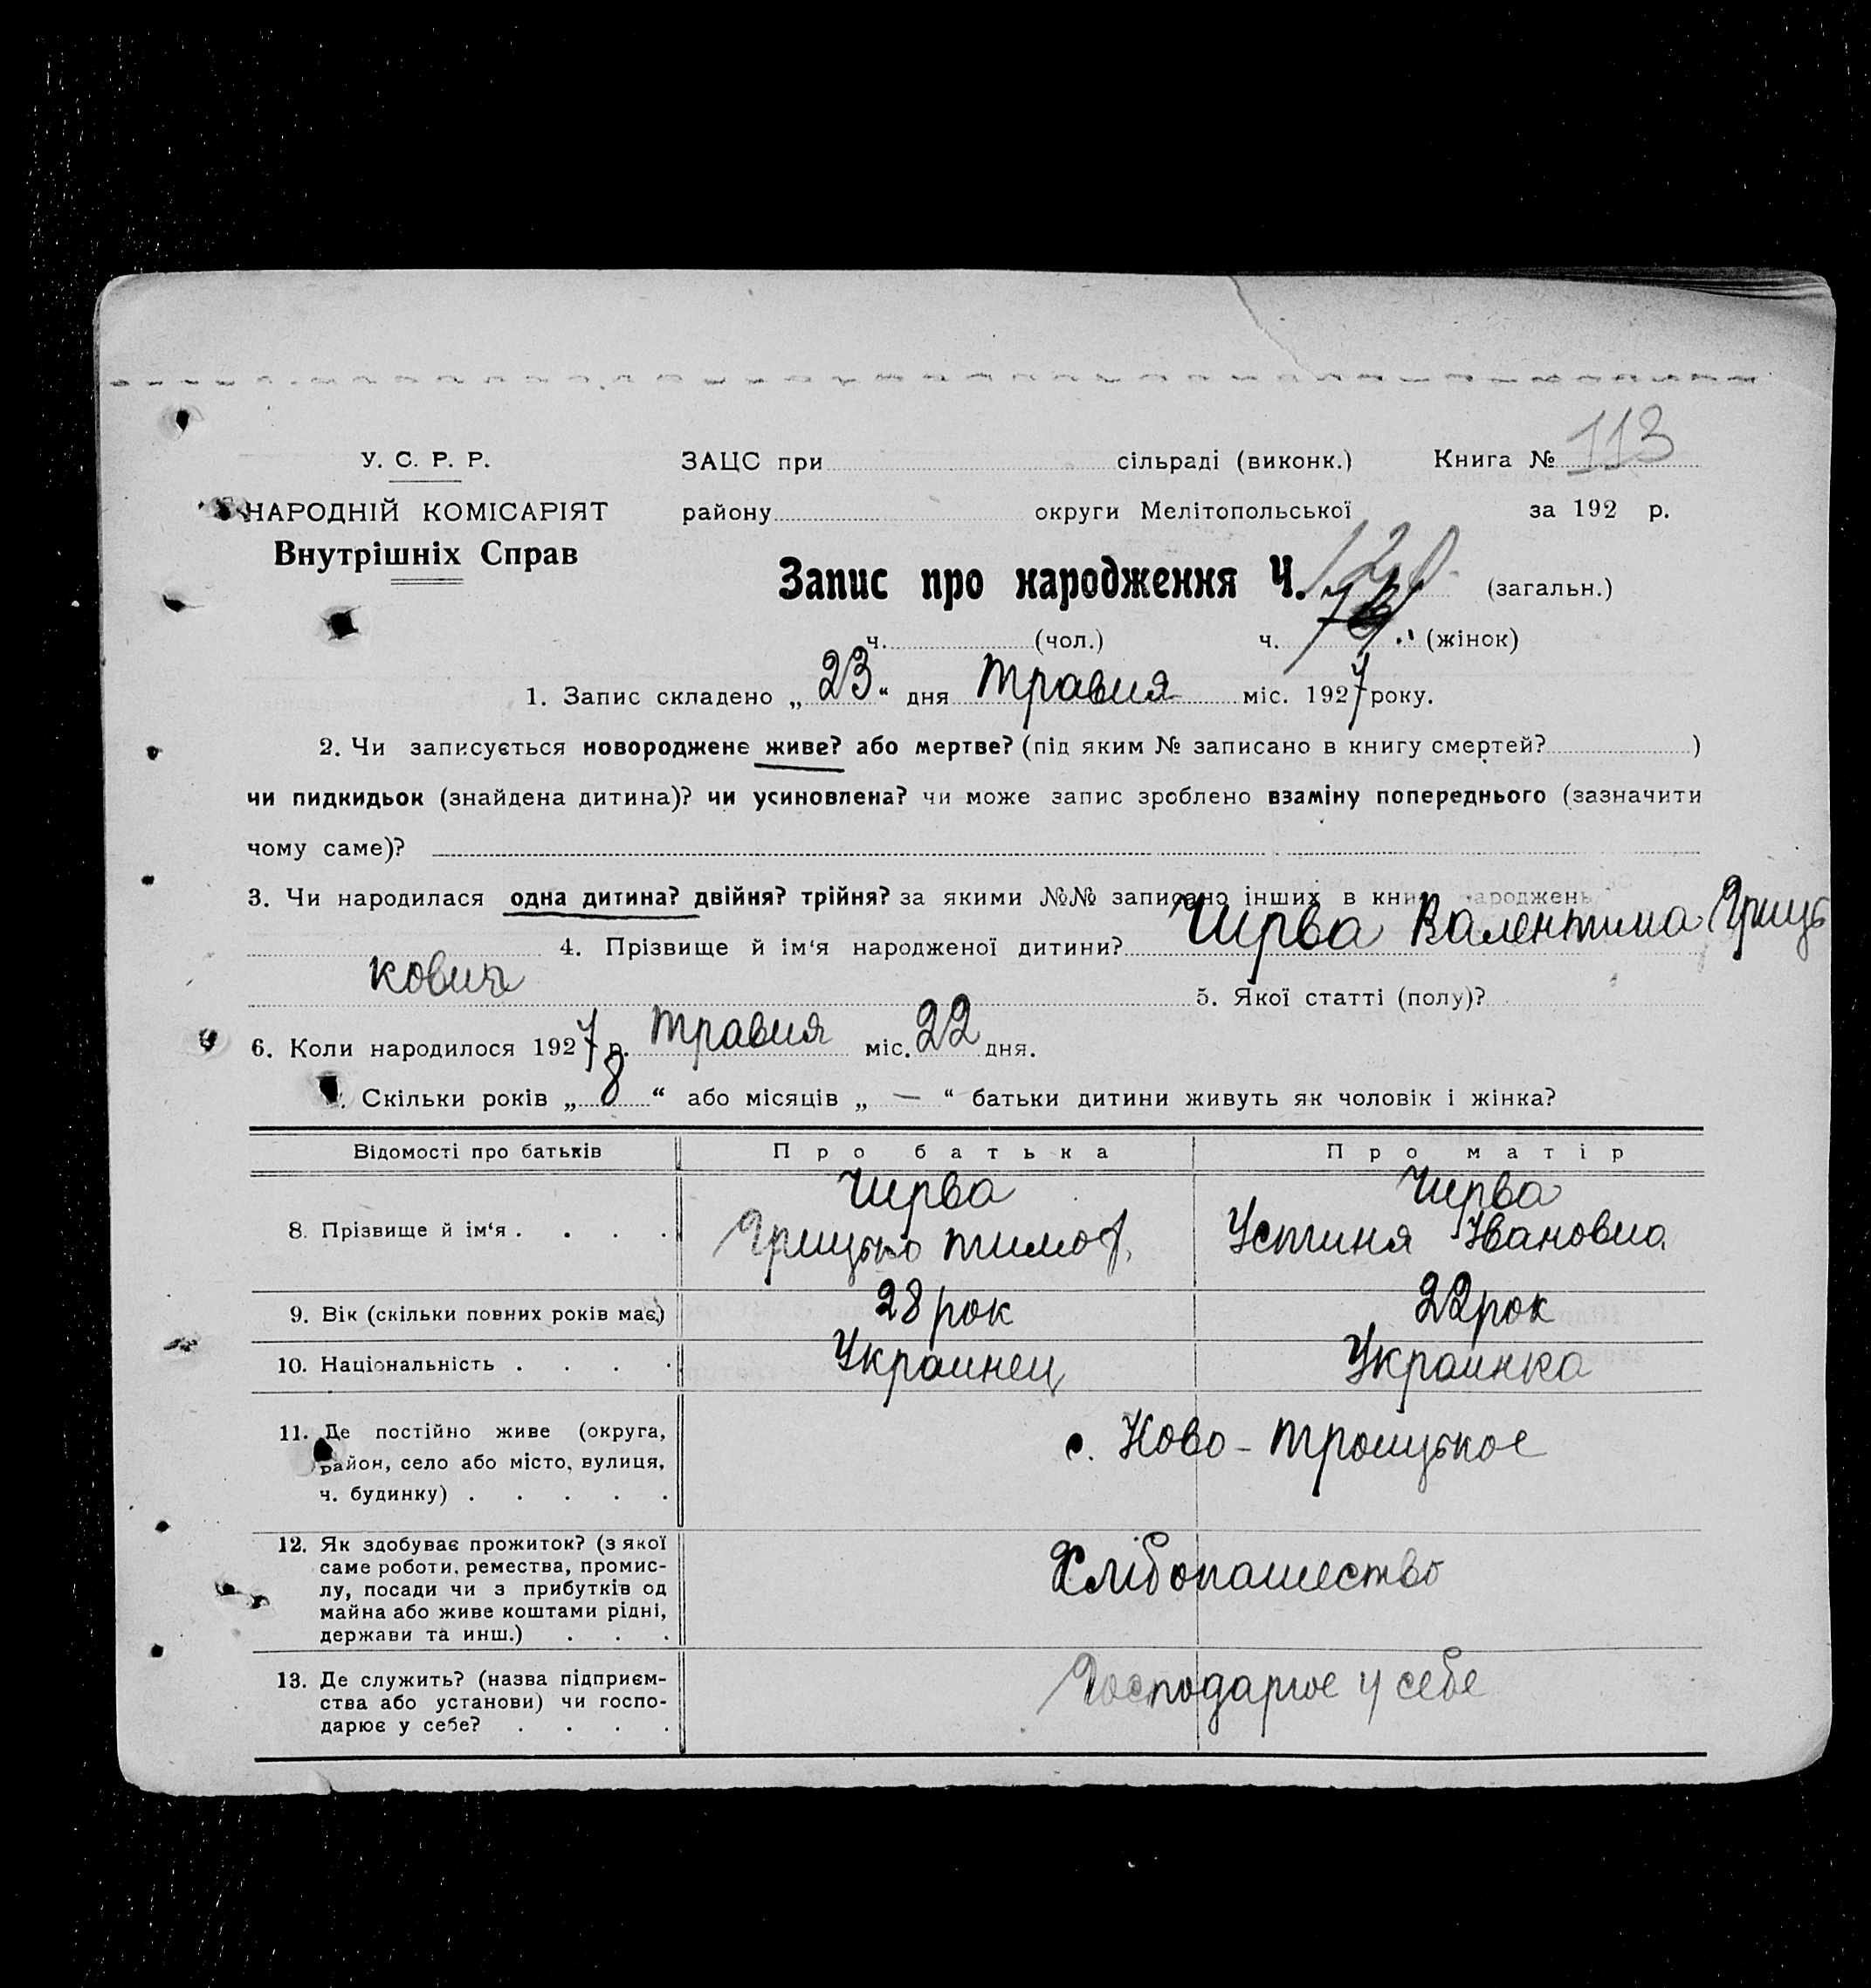 У. С. Р. Р.
НАРОДНІЙ КОМІСАРІЯТ
Внутрішніх Справ
ЗАЦС при сільраді (виконк.) Книга № 113
району округи Мелітопольської за 192 р.
Запис про народження Ч. 120 (загальн.)
ч. (чол.) ч. (жінок)
1. Запис складено „23“ дня травня міс. 1927 року.
2. Чи записується новороджене живе? або мертве? (під яким № записано в книгу смертей? )
чи пидкидьок (знайдена дитина)? чи усиновлена? чи може запис зроблено взаміну попереднього (зазначити
чому саме)?
3. Чи народилася одна дитина? двійня? трійня? за якими №№ записано інших в книг народжень
4. Прізвище й ім‘я народженої дитини? Чирва Валентина Гриць
ковна 5. Якої статті (полу)?
6. Коли народилося 1927 р. травня міс. 22 дня.
7. Скільки років „8“ або місяців „—“ батьки дитини живуть як чоловік і жінка?
Відомості про батьків Про батька Про матір
8. Прізвище й ім‘я . . . . Чирва Чирва
Грицько тимоф. Устиня Ивановна
9. Вік (скільки повних років має) 28 рок 22 рок
10. Національність . . . . Украинец Украинка
11. Де постійно живе (округа,
район, село або місто, вулиця,
ч. будинку) . . . . .
с. Ново-троицькое
12. Як здобуває прожиток? (з якої
саме роботи, ремества, промис-
лу, посади чи з прибутків од
майна або живе коштами рідні,
держави та инш.) . . .
Хлібопашество
13. Де служить? (назва підприєм-
ства або установи) чи госпо-
дарює у себе? . . . .
Господарює у себе